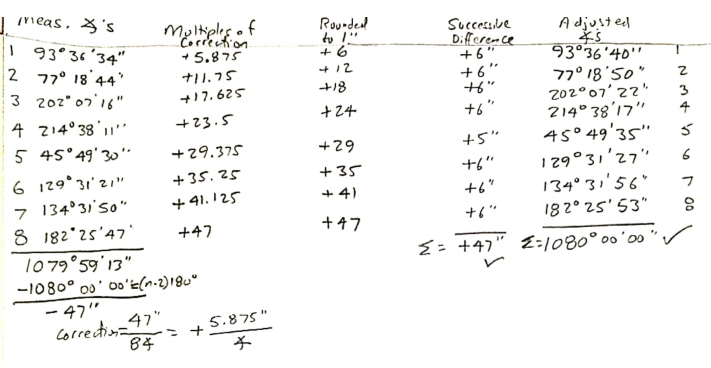 1. Meas. ∡'s Multiples of Correction Rounded to 1" Successive Difference Adjusted ∡'s
1 93°36'34" +5.875 +6 +6" 93°36'40" 1
2 77°18'44" +11.75 +12 +6" 77°18'50" 2
3 202°07'16" +17.625 +18 +6" 202°07'22" 3
4 214°38'11" +23.5 +24 +6" 214°38'17" 4
5 45°49'30" +29.375 +29 +5" 45°49'35" 5
6 129°31'21" +35.25 +35 +6" 129°31'27" 6
7 134°31'50" +41.125 +41 +6" 134°31'56" 7
8 182°25'47' +47 +47 +6" 182°25'53" 8
1079°59'13" Σ = +47" Σ=1080°00'00" ✓
✓
-1080°00'00"=(n-2)180°
-47"
Correction = 47"/8∡ = +5.875"/∡